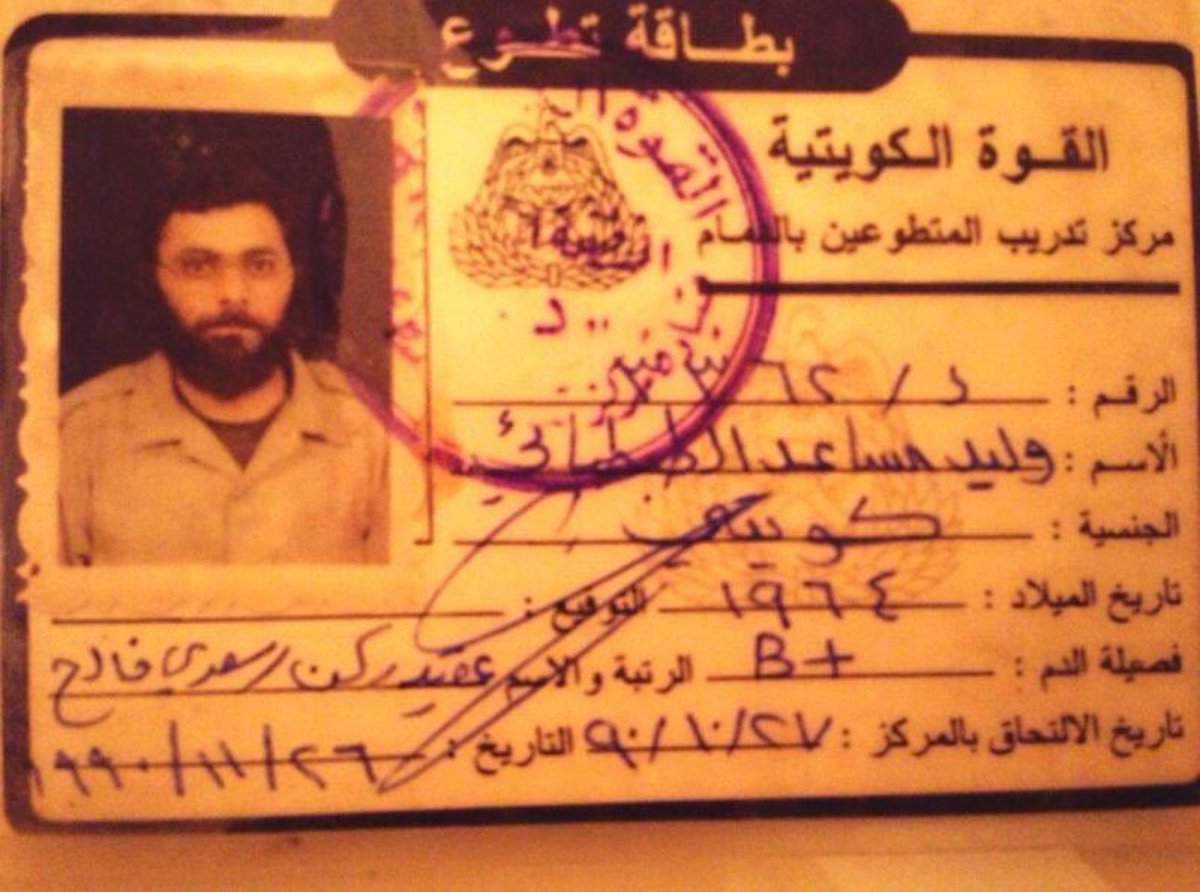 بطاقة تطوع
القوة الكويتية
مركز تدريب المتطوعين بالدمام
الرقم : د / ٣٦٢
الأسم : وليد مساعد الطبطبائي
الجنسية : كويتي
تاريخ الميلاد : ١٩٦٤ التوقيع :
فصيلة الدم : B+ الرتبة والاسم عقيد ركن سعدي فالح
تاريخ الالتحاق بالمركز : ٩٠/١٠/٢٧ التاريخ : ١٩٩٠/١١/٢٦
القوة